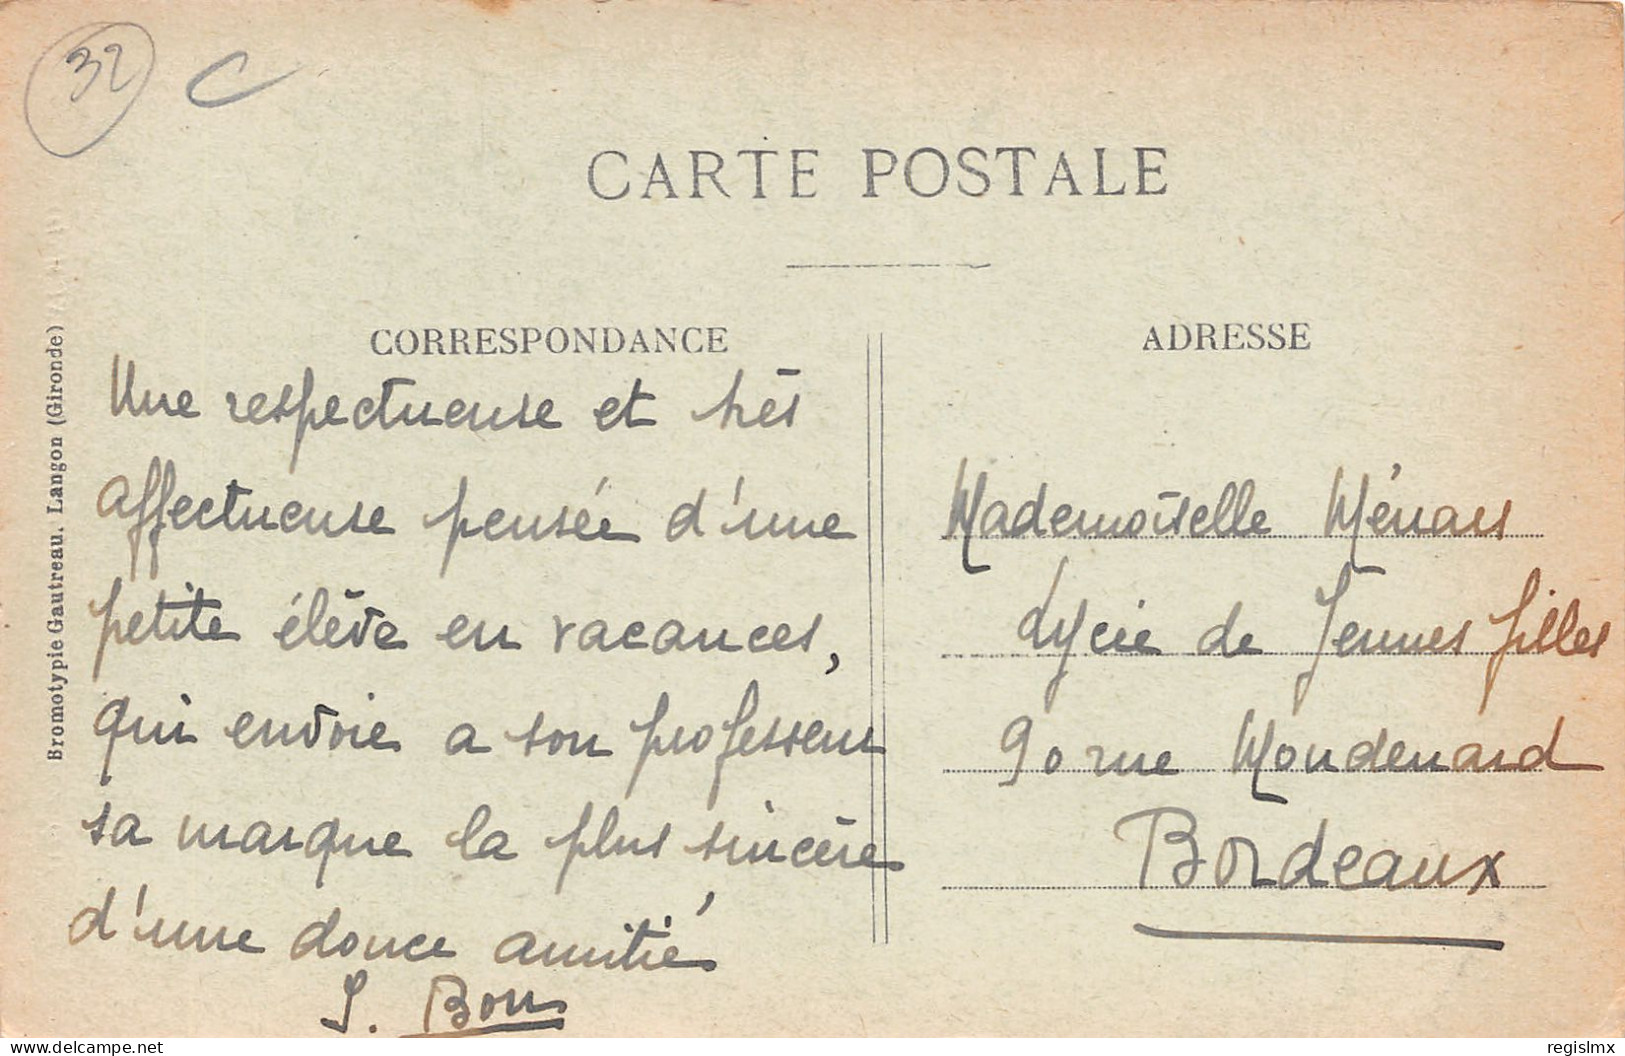 32
C
CARTE POSTALE
CORRESPONDANCE
Une respectueuse et très
affectueuse pensée d'une
petite élève en vacances,
qui envoie a son professeur
sa marque la plus sincère
d'une douce amitié
ADRESSE
Mademoiselle
Lycée de Jeunes filles
90 rue Mondenard
Bordeaux
Bromotypie Gautreau. Langon (Gironde)
www.delcampe.net
regislmx